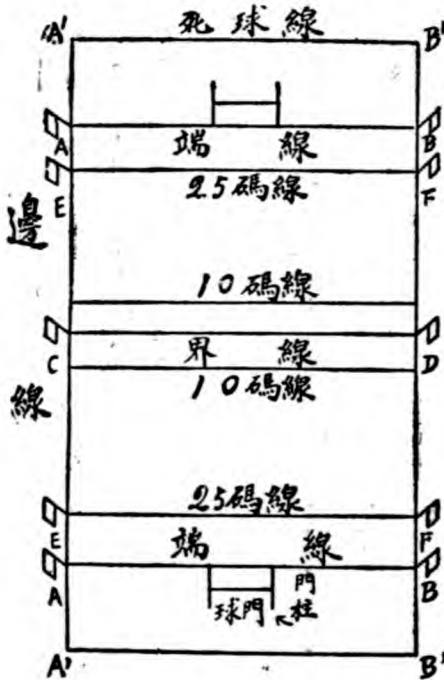 A' 死球線 B'
A 端線 B
E 25碼線 F
邊線
10碼線
C 界線 D
10碼線
25碼線
E 端線 F
A 球門 門柱 B
A' B'